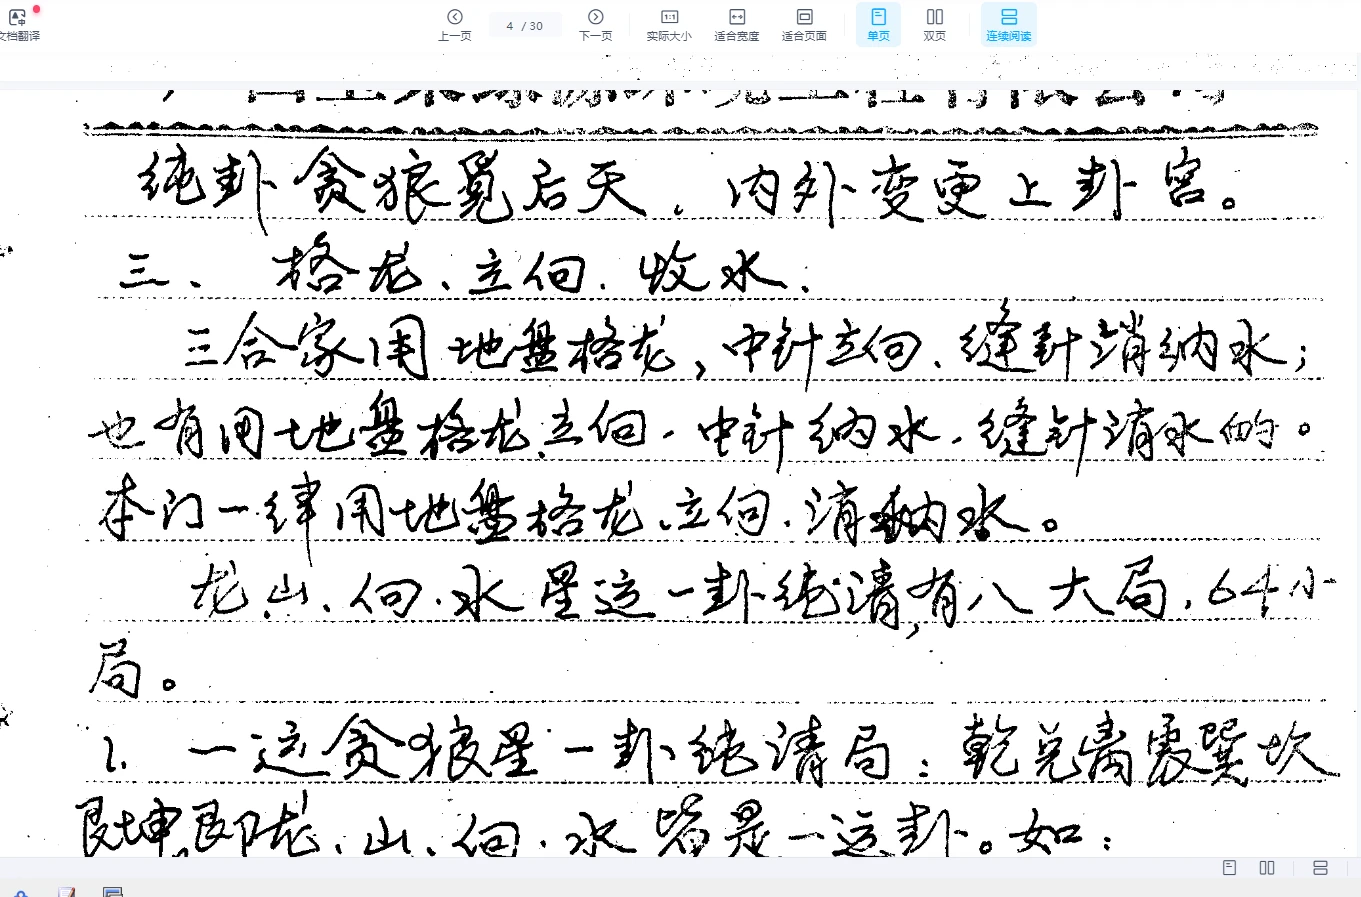 文档翻译
上一页
4 / 30
下一页
实际大小
适合宽度
适合页面
单页
双页
连续阅读
纯卦贪狼觅后天，内外变更上卦宫。
三、格龙、立向、收水：
三合家用地盘格龙，中针立向、缝针消纳水；
也有用地盘格龙立向，中针纳水，缝针消水的。
本门一律用地盘格龙、立向、消纳水。
龙、山、向、水星运一卦纯清，有八大局，64小
局。
1. 一运贪狼星一卦纯清局：乾兑离震巽坎
艮坤，即龙、山、向、水皆是一运卦。如：